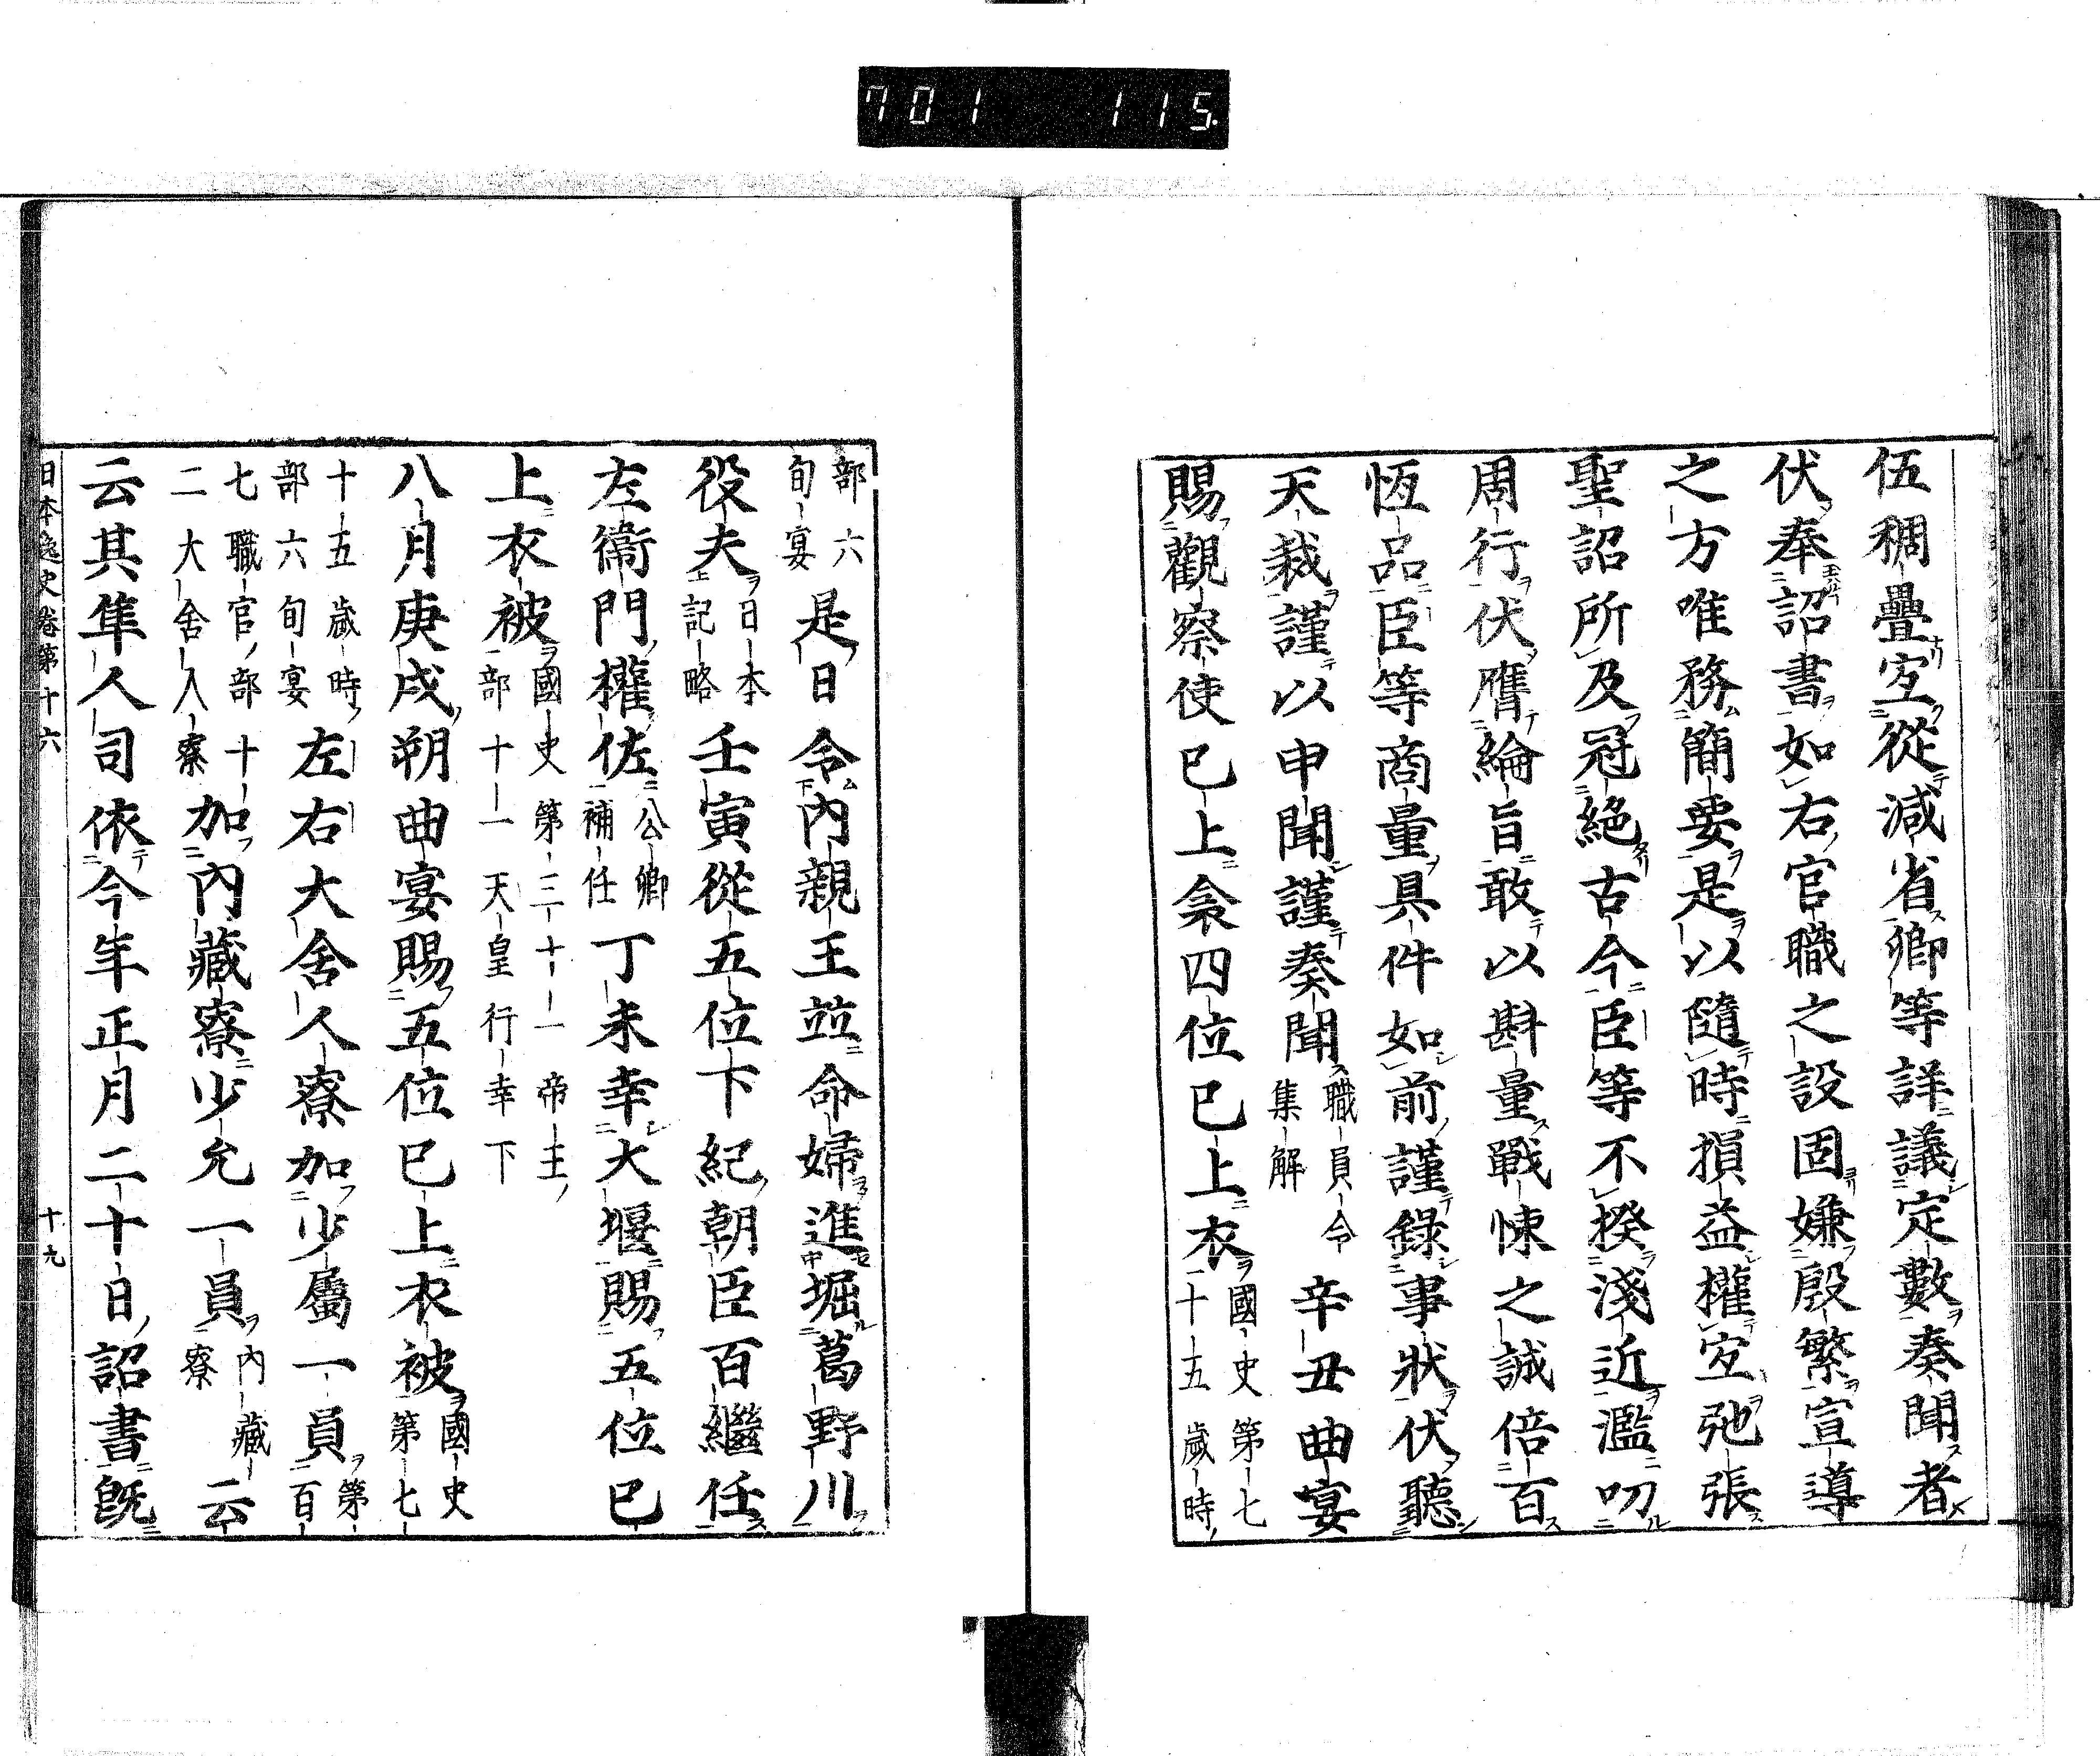 701 115
伍稠疊宜從減省卿等詳議定數奏聞者
伏奉詔書如右官職之設固嫌殷繁宣導
之方唯務簡要是以隨時損益權宜弛張
聖詔所及冠絶古今臣等不揆淺近濫叨
周行伏膺綸旨敢以斟量戰悚之誠倍百
恆品臣等商量具件如前謹錄事狀伏聽
天裁謹以申聞謹奏聞職員令集解辛丑曲宴
賜觀察使已上衾四位已上衣國史第七十五歲時
部六旬宴是日令內親王竝命婦進堀葛野川
役夫日本記略壬寅從五位下紀朝臣百繼任
左衞門權佐公卿補任丁未幸大堰賜五位已
上衣被國史第三十一帝王部十一天皇行幸下
八月庚戌朔曲宴賜五位已上衣被國史第七
十五歲時部六旬宴左右大舍人寮加少屬一員第百
七職官部十二大舍人寮加內藏寮少允一員內藏寮云
云其隼人司依今年正月二十日詔書既
日本逸史卷第十六 十九